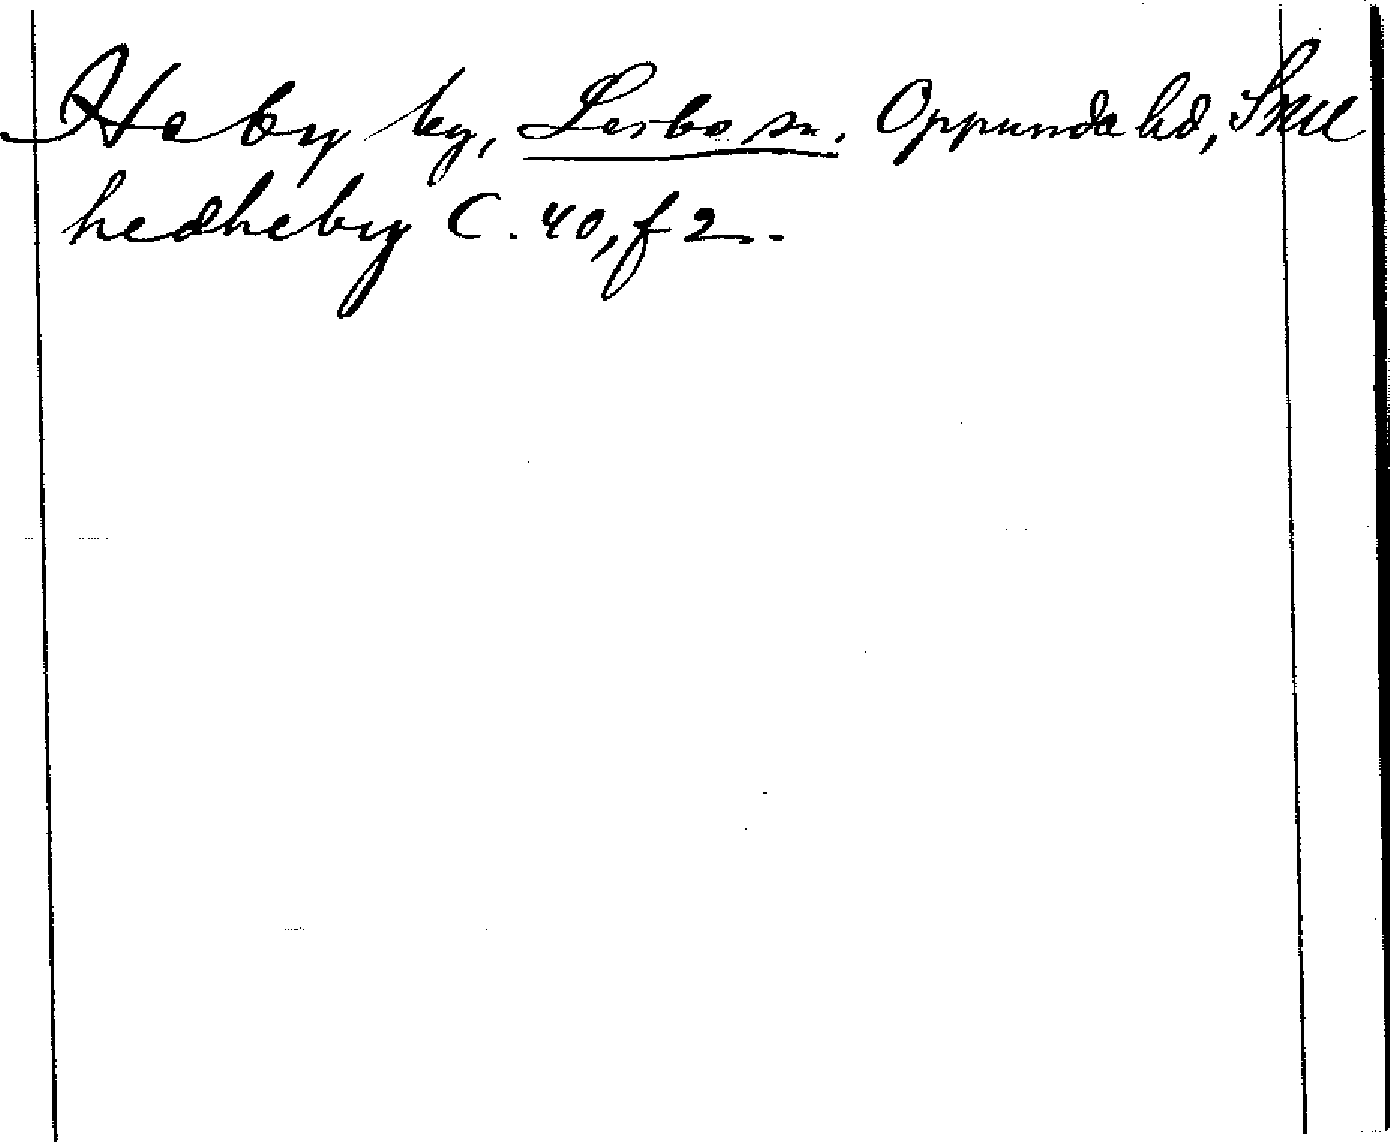 Heby by, Lerbo sn. Oppunda hd, Srml
hedheby C. 40, f 2.